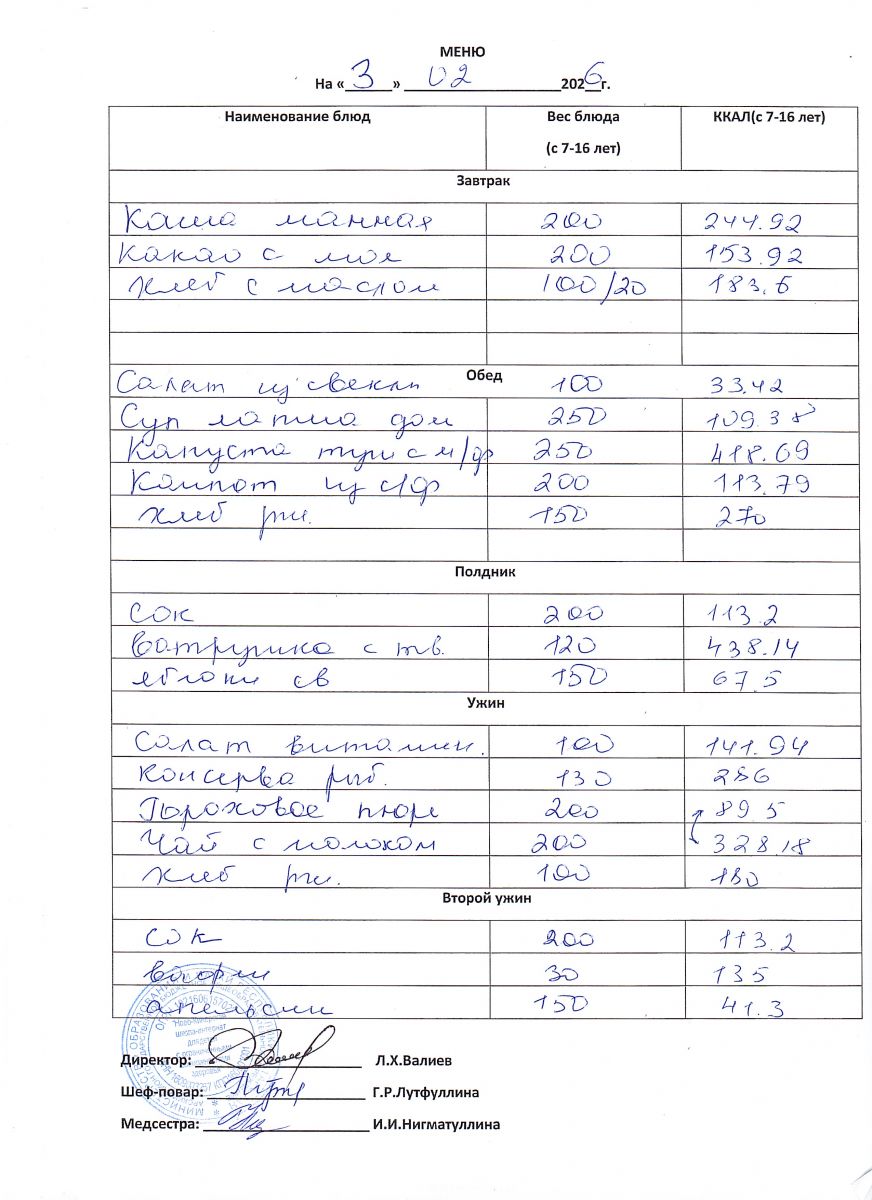 МЕНЮ
На «3» 02 2026г.
Наименование блюд Вес блюда (с 7-16 лет) ККАЛ(с 7-16 лет)
Завтрак
Каша манная 200 244.92
Какао с мол 200 153.92
Хлеб с маслом 100/20 183.6
Обед
Салат из свеклы 100 33.42
Суп лапша дом 250 109.38
Капуста туш с м/ф 250 418.69
Компот из с/ф 200 113.79
Хлеб рж. 150 270
Полдник
Сок 200 113.2
Ватрушка с тв. 120 438.14
яблоки св 150 67.5
Ужин
Салат витамин. 100 141.94
Консерва рыб. 130 286
Гороховое пюре 200 89 5
Чай с молоком 200 328.18
Хлеб рж. 100 180
Второй ужин
Сок 200 113.2
вафли 30 135
апельсин 150 41.3
Директор: Л.Х.Валиев
Шеф-повар: Г.Р.Лутфуллина
Медсестра: И.И.Нигматуллина